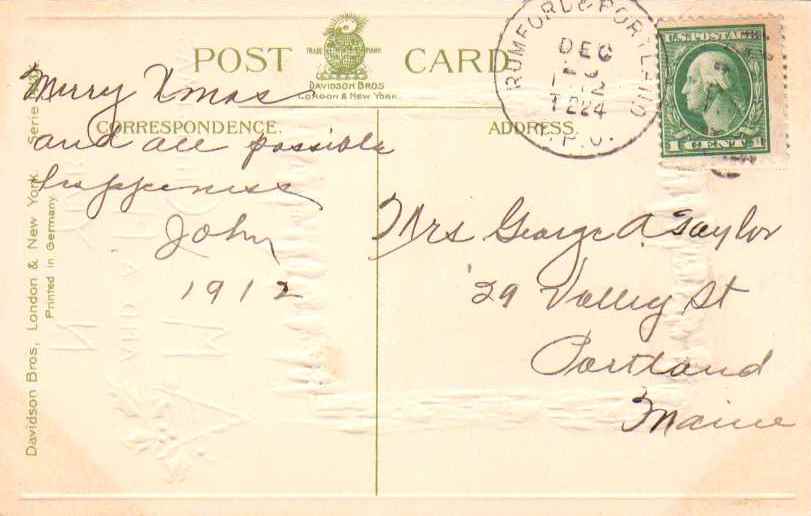 POST CARD
TRADE MARK
DAVIDSON BROS
LONDON & NEW YORK.
RUMFORD & PORTLAND
DEC
1224
R.P.O.
U.S. POSTAGE
1 CENT 1
CORRESPONDENCE.
ADDRESS.
Merry Xmas
and all possible
happeness
John
1912
Mrs George A. Taylor
29 Valley St
Portland
Maine
Davidson Bros, London & New York. Serie
Printed in Germany